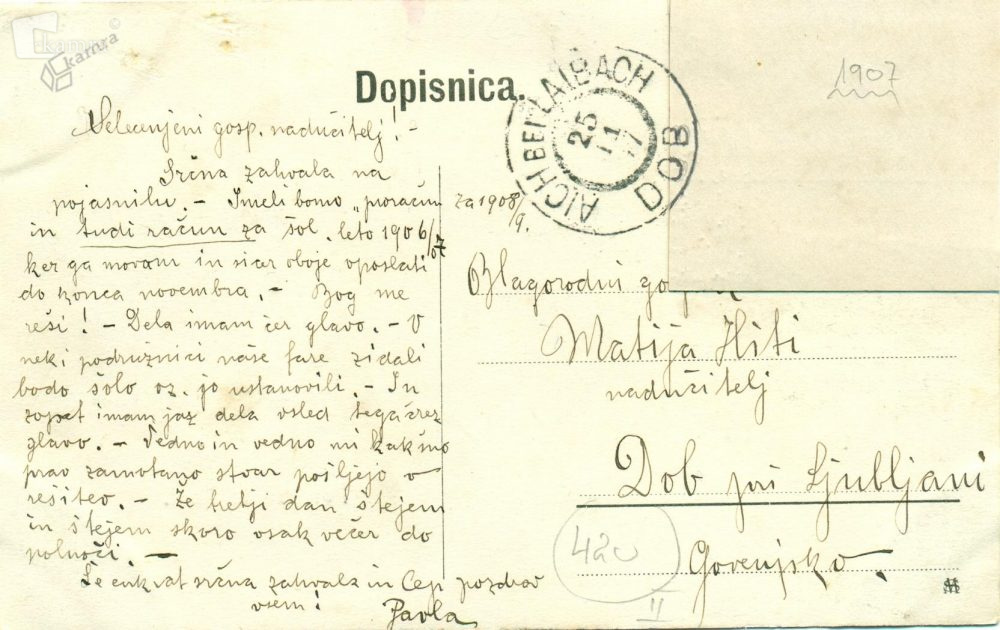 kamra
kamra
©
1907
Dopisnica.
AICH BEI LAIBACH
25
11
7
DOB
Velecenjeni gosp. nadučitelj! -
Srčna zahvala na
pojasnilu. - Imeli bomo „proračun
za 1908/9.
in tudi račun za šol. leto 1906/07
ker ga moram in sicer oboje vposlati
do konca novembra. - Bog me
reši! - Dela imam čez glavo. - V
neki podružnici naše fare zidali
bodo šolo oz. jo ustanovili. - In
zopet imam jaz dela vsled tega črez
glavo. - Vedno in vedno mi kakšno
prav zamotano stvar pošljejo v
rešitev. - Že tretji dan štejem
in štejem skoro vsak večer do
polnoči. -
Še enkrat srčna zahvala in pozdrav
vsem!
Pavla
Blagorodni
Matija Hiti
nadučitelj
Dob pri Ljubljani
Gorenjsko.
420
II